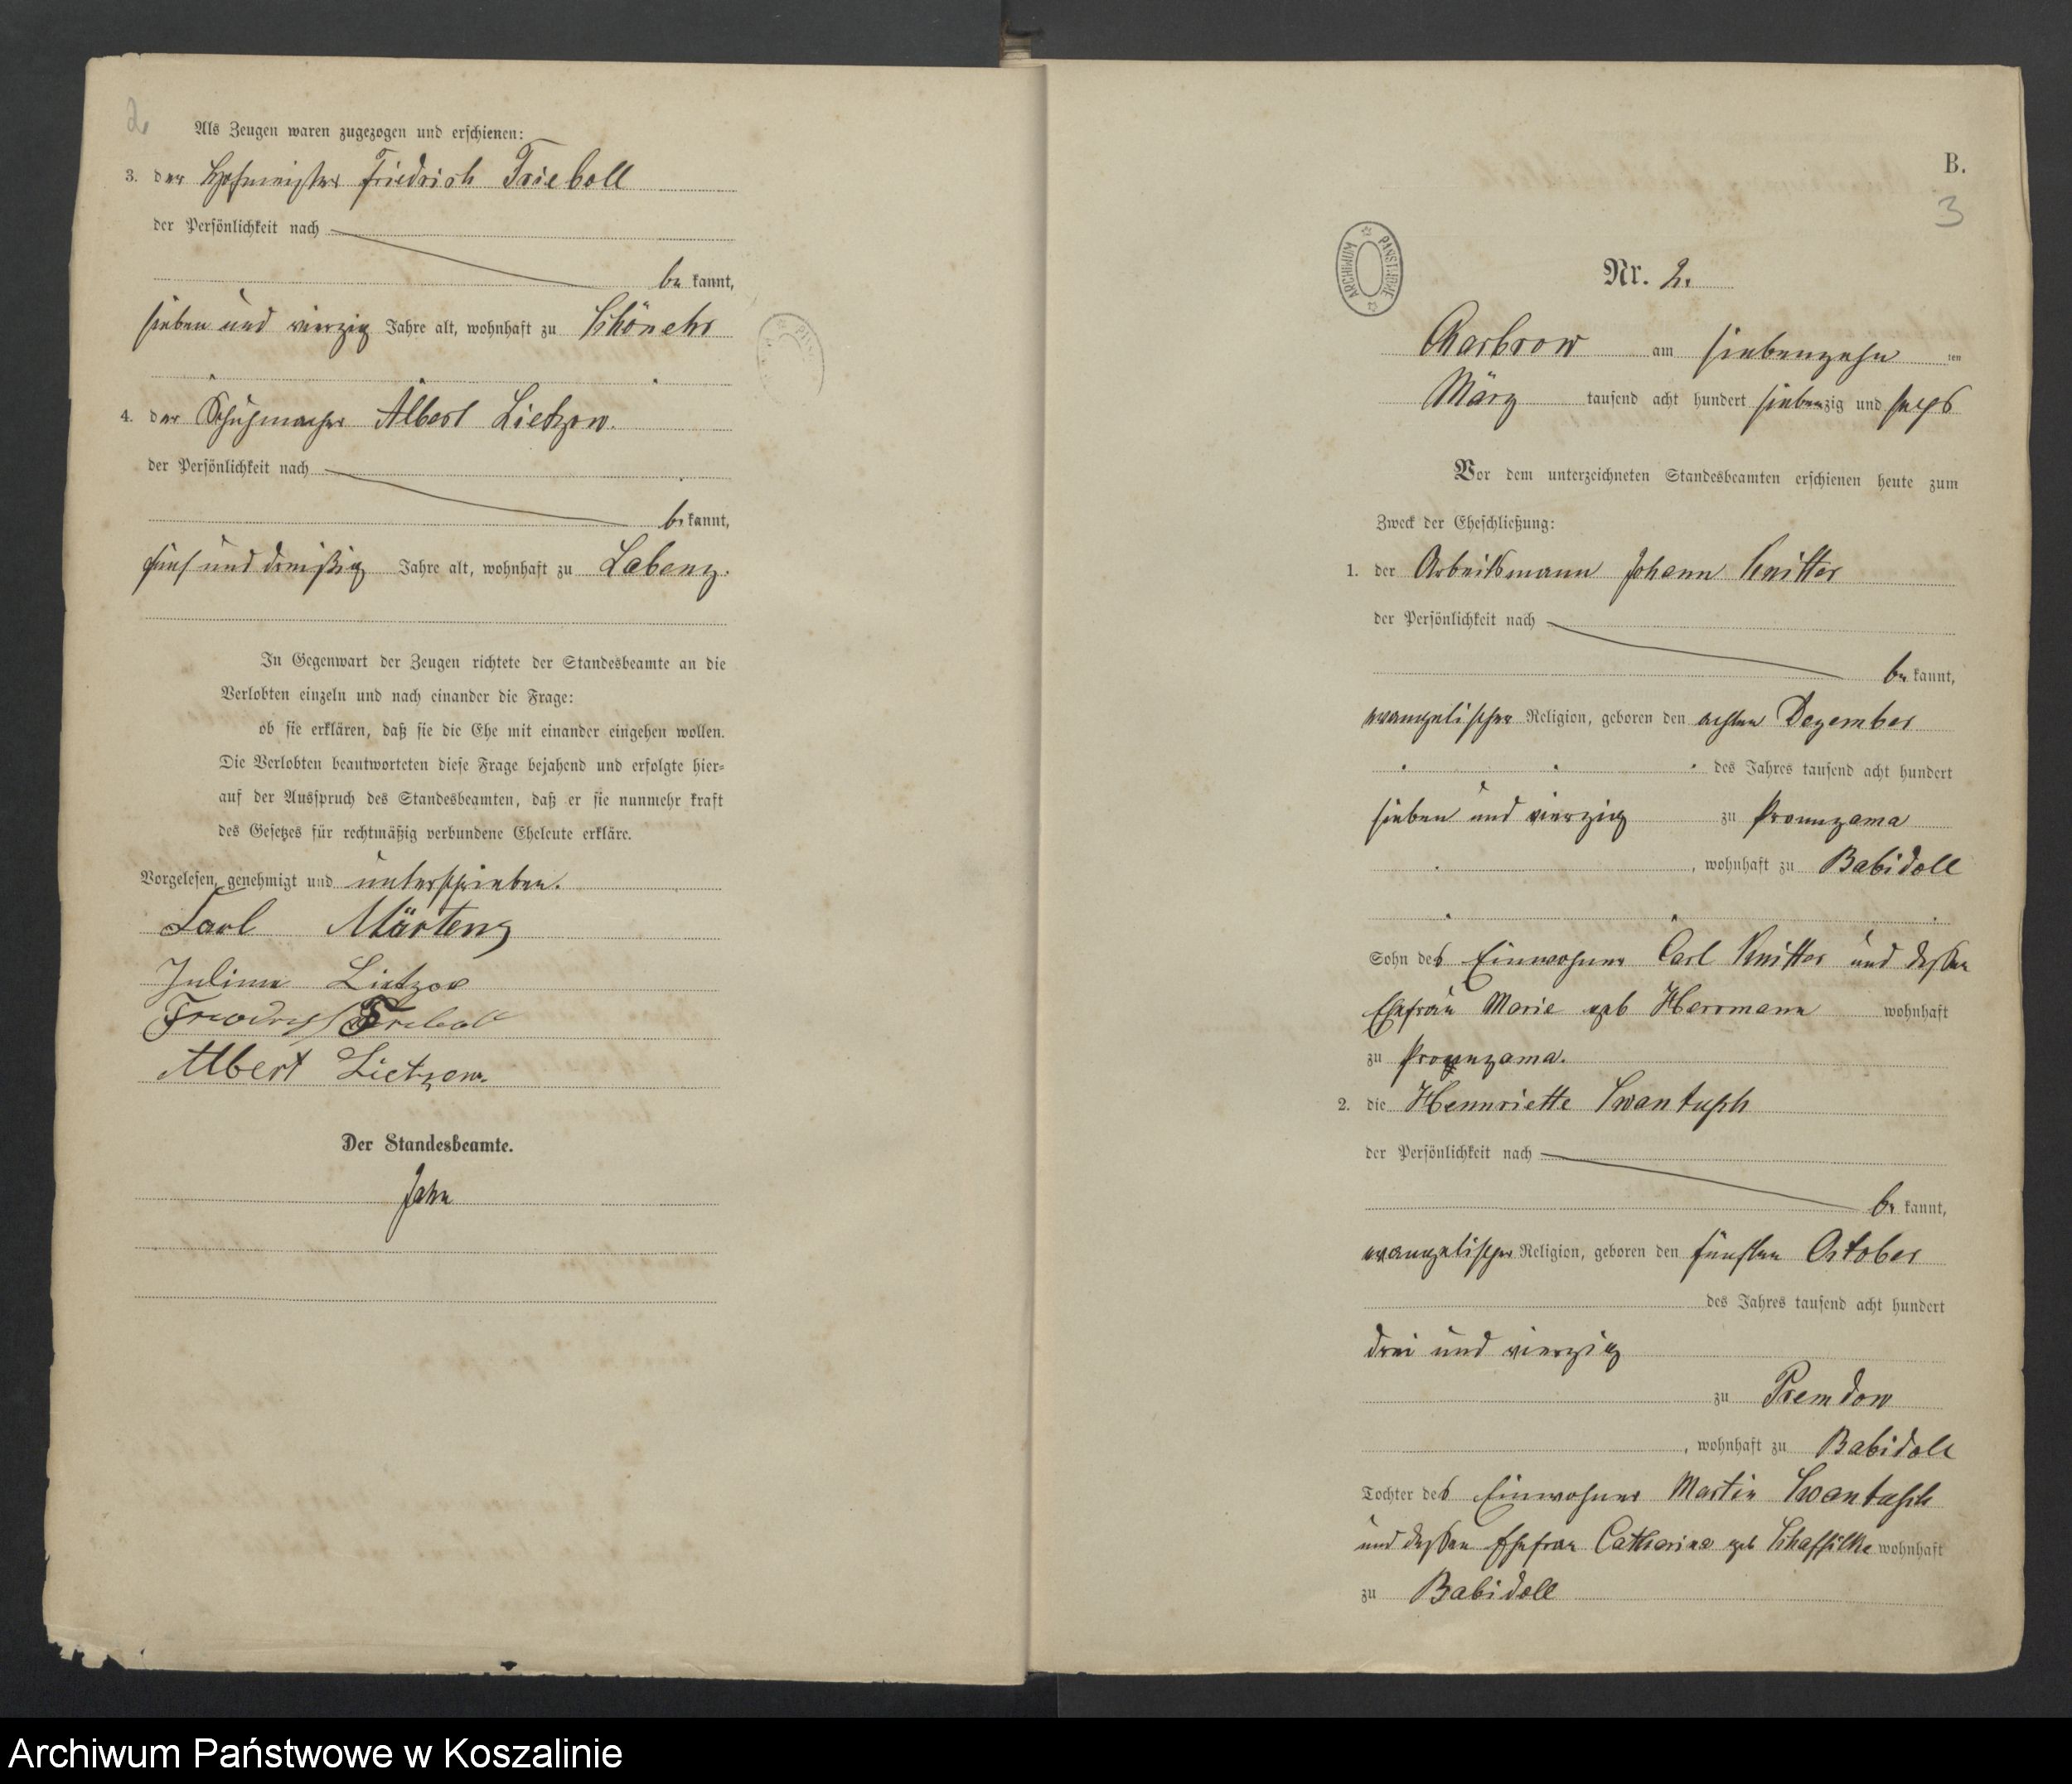 2
Als Zeugen waren zugezogen und erschienen:
3. der Hofmeister Friedrich Trieboll
der Persönlichkeit nach
be kannt,
sieben und vierzig Jahre alt, wohnhaft zu Schönehr
4. der Schuhmacher Albert Lietzow.
der Persönlichkeit nach
be kannt,
fünf und dreißig Jahre alt, wohnhaft zu Labenz.
In Gegenwart der Zeugen richtete der Standesbeamte an die
Verlobten einzeln und nach einander die Frage:
ob sie erklären, daß sie die Ehe mit einander eingehen wollen.
Die Verlobten beantworteten diese Frage bejahend und erfolgte hier-
auf der Ausspruch des Standesbeamten, daß er sie nunmehr kraft
des Gesetzes für rechtmäßig verbundene Eheleute erkläre.
Vorgelesen, genehmigt und unterschrieben.
Carl Märtens
Juline Lietzow
Friedrich Trieboll
Albert Lietzow.
Der Standesbeamte.
Jahn
B.
3
ARCHIWUM PAŃSTWOWE
Nr. 2.
Charbrow am siebenzehn ten
März tausend acht hundert siebenzig und sechs
Vor dem unterzeichneten Standesbeamten erschienen heute zum
Zweck der Eheschließung:
1. der Arbeitsmann Johann Knitter
der Persönlichkeit nach
be kannt,
evangelischer Religion, geboren den achten Dezember
des Jahres tausend acht hundert
sieben und vierzig zu
, wohnhaft zu Babidoll
Sohn des Einwohner Carl Knitter und dessen
Ehefrau Marie geb Herrmann wohnhaft
zu
2. die Hennriette Swantusch
der Persönlichkeit nach
be kannt,
evangelischer Religion, geboren den fünften October
des Jahres tausend acht hundert
drei und vierzig
zu
, wohnhaft zu Babidoll
Tochter des Einwohner Martin Swantusch
und dessen Ehefrau Catharina geb wohnhaft
zu Babidoll
Archiwum Państwowe w Koszalinie